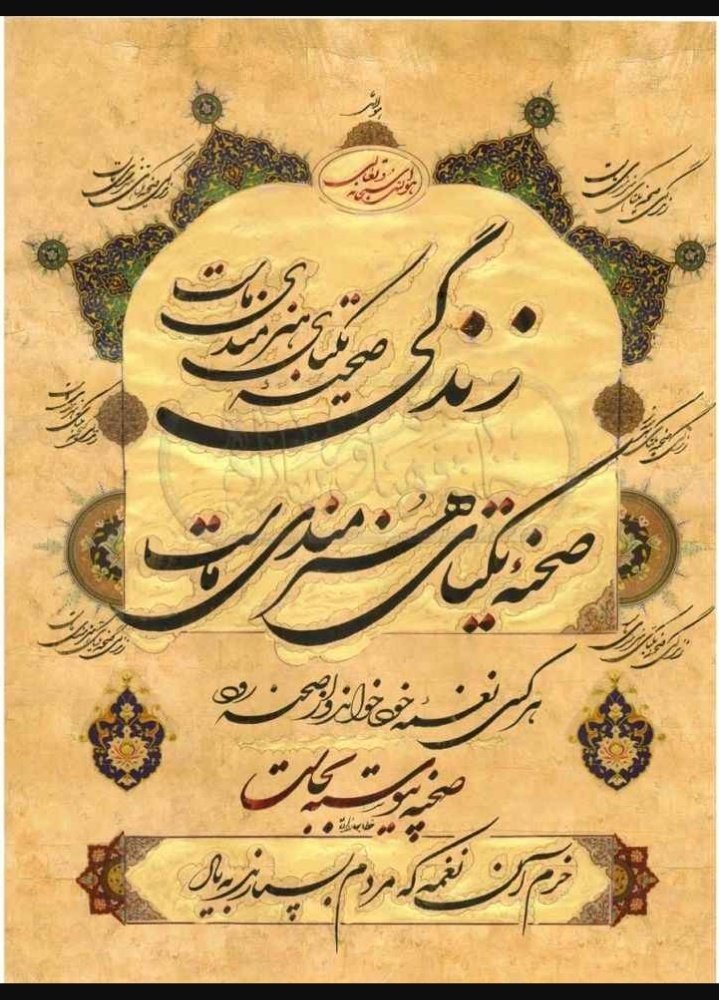 هو الله
هو الله سبحانه و تعالی
زندگی صحنهٔ یکتای هنرمندی ماست
صحنهٔ یکتای هنرمندی ماست
هر کسی نغمهٔ خود خواند و از صحنه رود
صحنه پیوسته بجاست
خرم آن نغمه که مردم بسپارند به یاد
زندگی صحنه یکتای هنرمندی ماست
زندگی صحنه یکتای هنرمندی ماست
زندگی صحنه یکتای هنرمندی ماست
زندگی صحنه یکتای هنرمندی ماست
زندگی صحنه یکتای هنرمندی ماست
زندگی صحنه یکتای هنرمندی ماست